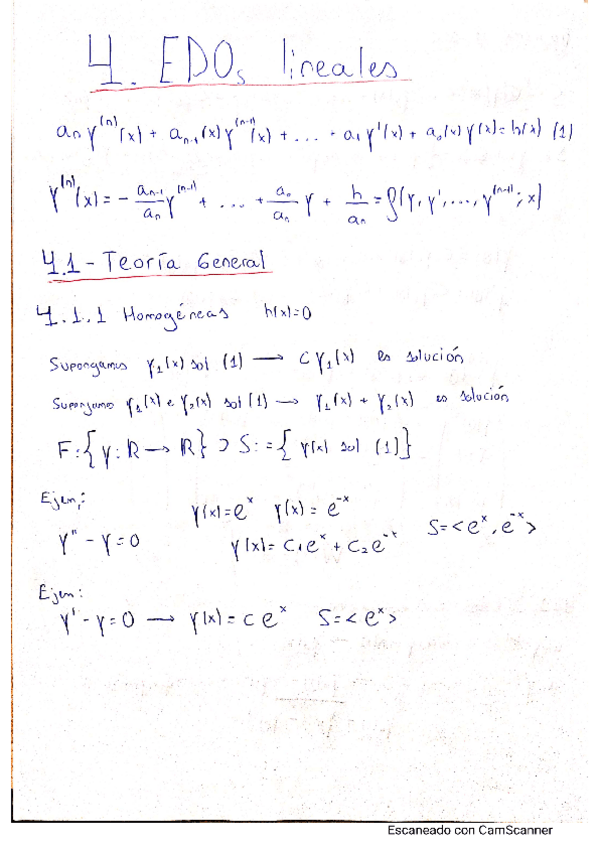 4. EDOs lineales
aₙ y⁽ⁿ⁾(x) + aₙ₋₁(x) y⁽ⁿ⁻¹⁾(x) + ... + a₁ y'(x) + a₀(x) y(x) = h(x) (1)
y⁽ⁿ⁾(x) = - aₙ₋₁/aₙ y⁽ⁿ⁻¹⁾ + ... + a₀/aₙ y + h/aₙ = f(y, y', ..., y⁽ⁿ⁻¹⁾; x)
4.1 - Teoría General
4.1.1 Homogéneas h(x)=0
Supongamos y₁(x) sol (1) → C y₁(x) es solución
Supongamos y₁(x) e y₂(x) sol (1) → y₁(x) + y₂(x) es solución
F:{y: R → R} ⊃ S:={y(x) sol (1)}
Ejem:
y(x) = eˣ y(x) = e⁻ˣ
y'' - y = 0 y(x) = C₁eˣ + C₂e⁻ˣ S = <eˣ, e⁻ˣ>
Ejem:
y' - y = 0 → y(x) = C eˣ S = <eˣ>
Escaneado con CamScanner